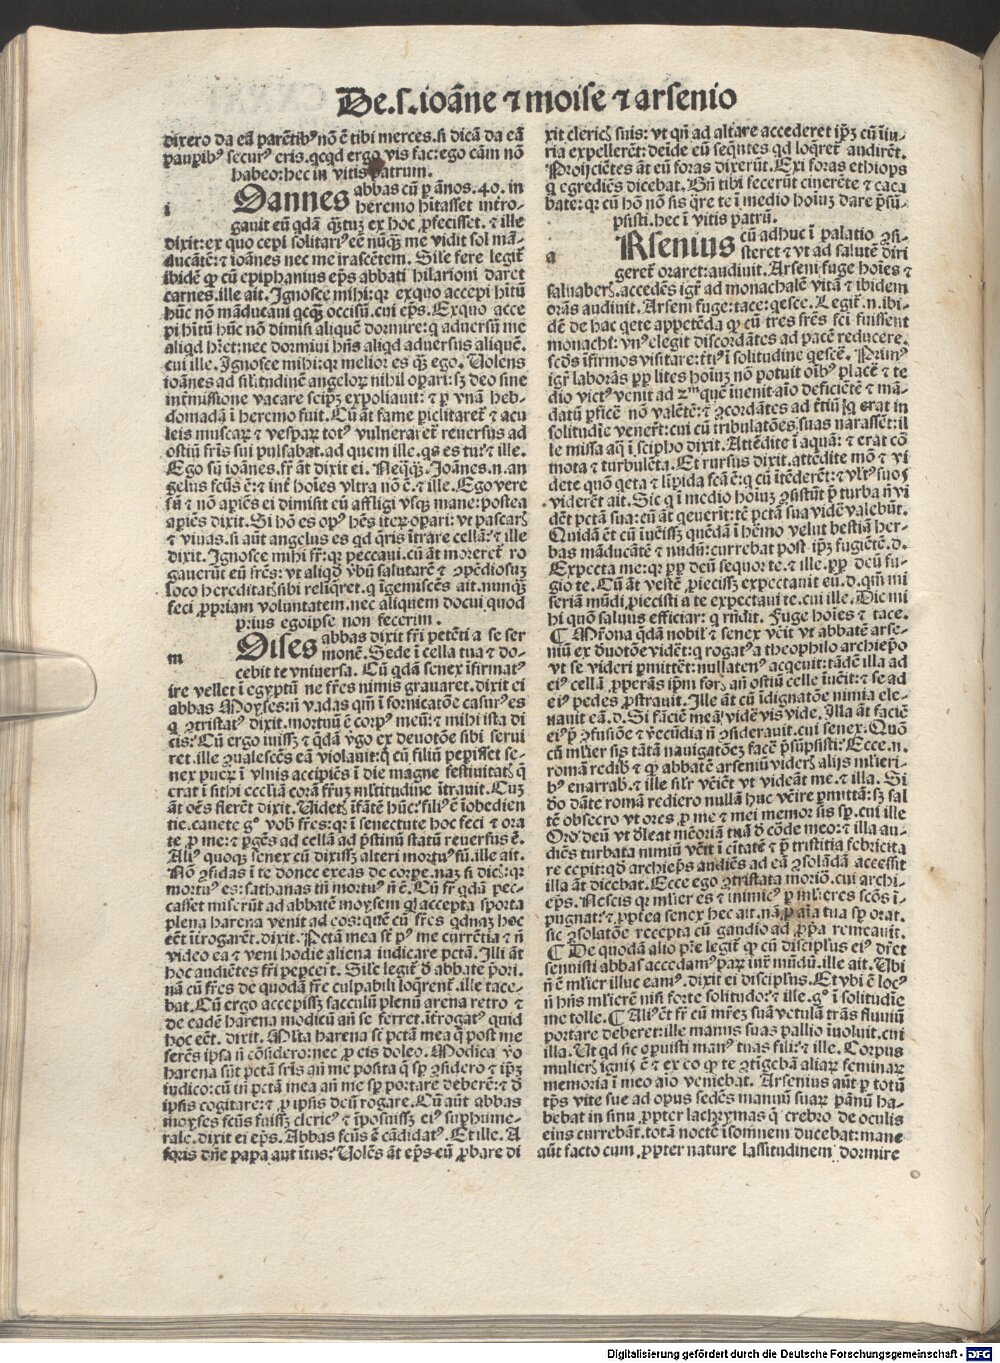 De.s.ioāne ⁊ moise ⁊ arsenio
dixero da eā parētibꝰ nō ē tibi merces. si dicā da eā
pauꝑibꝰ securꝰ eris. qcqd ergo vis fac: ego eām nō
habeo: hec in vitis patrum.
Oannes abbas cū ꝑ ānos .40. in
i heremo hītasset inťro-
gauit eū qdā qͣtuꝫ ex hoc ꝓfecisset. ⁊ ille
dixit: ex quo cepi solitariꝰ eē nūqͣ me vidit sol mā-
ducātē: ⁊ ioānes nec me irascētem. Sile fere legit᷑
ibidē ꝙ cū epiphanius ep̄s abbati hilarioni daret
carnes. ille ait. Ignosce mihi: qr exquo accepi hītū
hūc nō māducaui qcqͣ occisū. cui ep̄s. Exquo acce
pi hītū hūc nō dimisi aliquē dormire: q aduersū me
aliqd hr̄et: nec dormiui hn̄s aliqd aduersus aliquē.
cui ille. Ignosce mihi: qr melior es qͣ ego. Uolens
ioānes ad sił'itudinē angeloꝝ nihil opari: sꝫ deo sine
inťmissione vacare seip̄ꝫ expoliauit: ⁊ ꝑ vnā heb-
domadā ī heremo fuit. Cū āt fame piclitaret᷑ ⁊ acu
leis muscaꝝ ⁊ vespaꝝ totꝰ vulneraret᷑ reuersus ad
ostiū fr̄is sui pulsabat. ad quem ille. qs es tu: ⁊ ille.
Ego sū ioānes. fr̄ āt dixit ei. Neqͣqͣ. Joānes .n. an
gelus fcūs ē: ⁊ int᷑ hoīes vltra nō ē. ⁊ ille. Ego vere
sū ⁊ nō apiēs ei dimisit cū affligi vsqꝫ mane: postea
apiēs dixit. Si hō es opꝰ hēs iteꝝ opari: vt pascarꝭ
⁊ viuas. si aūt angelus es qd qris ītrare cellā: ⁊ ille
dixit. Ignosce mihi fr̄: qr peccaui. cū āt moreret᷑ ro
gauerūt eū fr̄es: vt aliqd ꝟbū salutarē ⁊ ꝯpēdiosuꝫ
loco hereditatꝭ sibi relīqret. q īgemiscēs ait. nunqͣ
feci ꝓpriam voluntatem. nec aliquem docui quod
prius egoipse non fecerim.
Oises abbas dixit fr̄i petēti a se ser
m monē. Sede ī cella tua ⁊ do-
cebit te vniuersa. Cū qdā senex īfirmatꝰ
ire vellet ī egyptū ne fr̄es nimis grauaret. dixit ei
abbas Moyses: ñ vadas qm̄ ī fornicatōe casurꝰ es
q ꝯtristatꝰ dixit. mortuū ē corpꝰ meū: ⁊ mihi ista di
cis: Cū ergo iuissꝫ ⁊ qdā ꝟgo ex deuotōe sibi serui
ret. ille ꝯualescēs eā violauit: q cū filiū peperisset se-
nex pueꝝ ī vlnis accipiēs ī die magne festiuitatꝭ q̄
erat ī sithi eccliā corā fr̄uꝫ mł'titudine ītrauit. Cuꝫ
āt oēs flerēt dixit. Uidetꝭ īfātē hūc: filiꝰ ē īobedien
tie. cauete gͦ vob fr̄es: qr ī senectute hoc feci ⁊ ora
te ꝑ me: ⁊ ꝑgēs ad cellā ad pr̄stinū statū reuersus ē.
Aliꝰ quoqꝫ senex cū dixissꝫ alteri mortuꝰ sū. ille ait.
Nō ꝯfidas ī te donec exeas de corꝑe. naꝫ si dicꝭ: qr
mortuꝰ es: sathanas tn̄ mortuꝰ ñ ē. Cū fr̄ qdā pec-
casset miserūt ad abbatē moysem q accepta sporta
plena harena venit ad eos: quē cū fr̄es qdnaꝫ hoc
eēt ītrogarēt. dixit. Pctā mea sť pꝰ me currētia ⁊ ñ
video ea ⁊ veni hodie aliena iudicare pctā. Illi āt
hoc audiētes fr̄i peꝑcer̄t. Sile legit᷑ ꝺ abbate p̄ori.
nā cū fr̄es de quodā fr̄e culpabili loqrent᷑. ille tace-
bat. Cū ergo accepissꝫ sacculū plenū arena retro ⁊
de eadē harena modicū añ se ferret. īťrogatꝰ quid
hoc eēt. dixit. Mł'ta harena sť pctā mea q̄ post me
ferēs ipsa ñ cōsidero: nec ꝓ eis doleo. Modica ꝟo
harena sūt pctā fr̄is añ me posita q̄ sp ꝯsidero ⁊ ip̄ꝫ
iudico: cū tn̄ pctā mea añ me sp portare deberē: ⁊ ꝺ
ipsis cogitare: ⁊ ꝓ ipsis deū rogare. Cū aūt abbas
moyses fcūs fuissꝫ clericꝰ ⁊ īposuissꝫ eiꝰ suphume-
rale. dixit ei ep̄s. Abbas fcūs ē cādidatꝰ. Et ille. A
foris dn̄e papa aut ītus: Uolēs āt ep̄s eū ꝓbare di
xit clericꝭ suis: vt qn̄ ad altare accederet ip̄ꝫ cū iniu-
ria expellerēt: deīde eū seqn̄tes qd loqret᷑ audirēt.
Proijciētes āt eū foras dixerūt. Exi foras ethiops
q egrediēs dicebat. Bn̄ tibi fecerūt cinerēte ⁊ caca
bate: qr cū hō nō sis qre te ī medio hoīuꝫ dare p̄sū-
psisti. hec ī vitis patrū.
Rsenius cū adhuc ī palatio ꝯsi-
a steret ⁊ vt ad salutē diri
geret᷑ oraret: audiuit. Arseni fuge hoīes ⁊
saluaberꝭ. accedēs igr̄ ad monachalē vitā ⁊ ibidem
orās audiuit. Arseni fuge: tace: qesce. Legit᷑ .n. ibi-
dē de hac qete appetēda ꝙ cū tres fr̄es fcī fuissent
monachi: vnꝰ elegit discordātes ad pacē reducere.
scdꝰs īfirmos visitare: ťtiꝰ ī solitudine qescē. Primꝰ
igr̄ laborās ꝓpť lites hoīuꝫ nō potuit oībꝰ placē ⁊ te
dio victꝰ venit ad 2ᵐ quē īuenit aīo deficiētē ⁊ mā-
datū ꝑficē nō valētē: ⁊ ꝯcordātes ad ťtiū q erat in
solitudīe venert̄: cui cū tribulatōes suas narassēt: il
le missa aqͣ ī scipho dixit. Attēdite ī aquā: ⁊ erat cō
mota ⁊ turbulēta. Et rursus dixit. attēdite mō ⁊ vi
dete quō qeta ⁊ līpida fcā ē: q cū ītēderēt: ⁊ vľtꝰ suos
viderēt ait. Sic q ī medio hoīuꝫ ꝯsistūt p̄ turba ñ vi
dēt pctā sua: cū āt qeuerīt: tē pctā sua vidē valebūt.
Quidā et cū īueissꝫ quēdā ī h̄emo velut bestiā her-
bas māducātē ⁊ nudū: currebat post ip̄ꝫ fugiētē. d.
Expecta me: qr ꝓpť deū sequor te. ⁊ ille. ꝓpť deū fu-
gio te. Cū āt vestē ꝓiecissꝫ expectauit eū .d. qm̄ mi
seriā mūdi ꝓiecisti a te expectaui te. cui ille. Dic mi
hi quō saluus efficiar: q rn̄dit. Fuge hoīes ⁊ tace.
¶ Mr̄ona qdā nobil' ⁊ senex vēit vt abbatē arse-
niū ex ꝺuotōe vidēt: q rogatꝰ a theophilo archiep̄o
vt se videri ꝑmittēt: nullatenꝰ acqeuit: tādē illa ad
eiꝰ cellā ꝓperās ip̄m forꝭ añ ostiū celle īuēit: ⁊ se ad
eiꝰ pedes ꝓstrauit. Ille āt cū īdignatōe nimia ele-
uauit eā. d. Si faciē meā vidē vis vide. Illa āt faciē
eiꝰ p̄ ꝯfusiōe ⁊ ꝟecūdia ñ ꝯsiderauit. cui senex. Quō
cū mł'ier sis tātā nauigatōeꝫ facē p̄sūpsisti: Ecce .n.
romā redibꝭ ⁊ ꝙ abbatē arseniū viderꝭ alijs mł'ieri-
bꝰ enarrabꝭ. ⁊ ille sil'r vēiēt vt videāt me. ⁊ illa. Si
ꝺo dāte romā rediero nullā huc vēire ꝑmittā: sꝫ sal
tē obsecro vt ores ꝓ me ⁊ mei memor sis sp. cui ille
Oro deū vt ꝺleat mēoriā tuā ꝺ cōde meo: ⁊ illa au-
diēs turbata nimiū vēit ī ciutatē ⁊ p̄ tristitia febricita
re cepit: qd archiep̄s audiēs ad eā ꝯsolādā accessit
illa āt dicebat. Ecce ego ꝯtristata moriō. cui archi-
ep̄s. Nescis qr mł'ier es ⁊ inimicꝰ ꝑ mł'ieres scōs ī-
pugnat: ⁊ ꝓptea senex hec ait. nā ꝓ aīa tua sp orat.
sic ꝯsolatōe recepta cū gaudio ad ꝓpa remeauit.
¶ De quodā alio pr̄e legit᷑ ꝙ cū disciplus eiꝰ dr̄et
sennisti abbas accedamꝰ paꝝ inť mūdū. ille ait. Ubi
ñ ē mł'ier illuc eamꝰ. dixit ei disciplus. Et vbi ē locꝰ
ñ hn̄s mł'ierē nisi forte solitudo: ⁊ ille. gͦ ī solitudīe
me tolle. ¶ Aliꝰ et fr̄ cū mr̄eꝫ suā vetulā trās fluuiū
portare deberet: ille manus suas pallio īuoluit. cui
illa. Ut qd sic opuisti manꝰ tuas fili: ⁊ ille. Corpus
mulierꝭ ignis ē ⁊ ex eo ꝙ te ꝯtīgebā aliaꝝ feminaꝝ
memoria ī meo aīo veniebat. Arsenius aūt ꝑ totū
tp̄s vite sue ad opus sedēs manuū suaꝝ pānū ha-
bebat in sinu ꝓpter lachrymas q̄ crebro de oculis
eius currebāt. totā noctē īsomnem ducebat: mane
aūt facto cum ꝓpter nature lassitudinem dormire
Digitalisierung gefördert durch die Deutsche Forschungsgemeinschaft - DFG